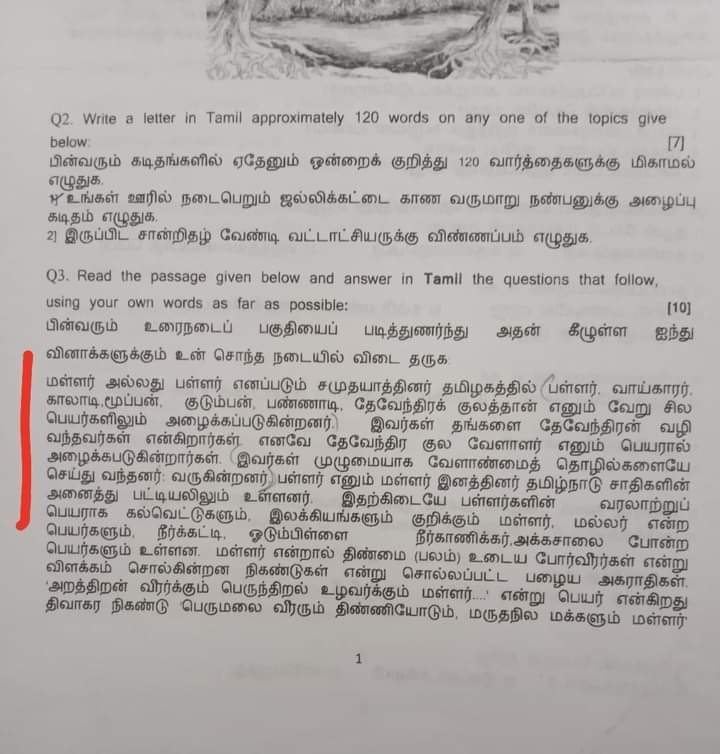 Q2. Write a letter in Tamil approximately 120 words on any one of the topics give
below: [7]
பின்வரும் கடிதங்களில் ஏதேனும் ஒன்றைக் குறித்து 120 வார்த்தைகளுக்கு மிகாமல்
எழுதுக.
1) உங்கள் ஊரில் நடைபெறும் ஜல்லிக்கட்டை காண வருமாறு நண்பனுக்கு அழைப்பு
கடிதம் எழுதுக.
2) இருப்பிட சான்றிதழ் வேண்டி வட்டாட்சியருக்கு விண்ணப்பம் எழுதுக.
Q3. Read the passage given below and answer in Tamil the questions that follow,
using your own words as far as possible: [10]
பின்வரும் உரைநடைப் பகுதியைப் படித்துணர்ந்து அதன் கீழுள்ள ஐந்து
வினாக்களுக்கும் உன் சொந்த நடையில் விடை தருக:
மள்ளர் அல்லது பள்ளர் எனப்படும் சமுதாயத்தினர் தமிழகத்தில் பள்ளர், வாய்காரர்,
காலாடி,மூப்பன், குடும்பன், பண்ணாடி, தேவேந்திரக் குலத்தான் எனும் வேறு சில
பெயர்களிலும் அழைக்கப்படுகின்றனர். இவர்கள் தங்களை தேவேந்திரன் வழி
வந்தவர்கள் என்கிறார்கள். எனவே தேவேந்திர குல வேளாளர் எனும் பெயரால்
அழைக்கபடுகின்றார்கள். இவர்கள் முழுமையாக வேளாண்மைத் தொழில்களையே
செய்து வந்தனர்: வருகின்றனர். பள்ளர் எனும் மள்ளர் இனத்தினர் தமிழ்நாடு சாதிகளின்
அனைத்து பட்டியலிலும் உள்ளனர். இதற்கிடையே பள்ளர்களின் வரலாற்றுப்
பெயராக கல்வெட்டுகளும், இலக்கியங்களும் குறிக்கும் மள்ளர், மல்லர் என்ற
பெயர்களும், நீர்க்கட்டி, ஓடும்பிள்ளை நீர்காணிக்கர்,அக்கசாலை போன்ற
பெயர்களும் உள்ளன. மள்ளர் என்றால் திண்மை (பலம்) உடைய போர்வீரர்கள் என்று
விளக்கம் சொல்கின்றன நிகண்டுகள் என்று சொல்லப்பட்ட பழைய அகராதிகள்.
'அறத்திறன் விரர்க்கும் பெருந்திறல் உழவர்க்கும் மள்ளர்....' என்று பெயர் என்கிறது
திவாகர நிகண்டு 'பெருமலை வீரரும் திண்ணியோடும், மருதநில மக்களும் மள்ளர்'
1